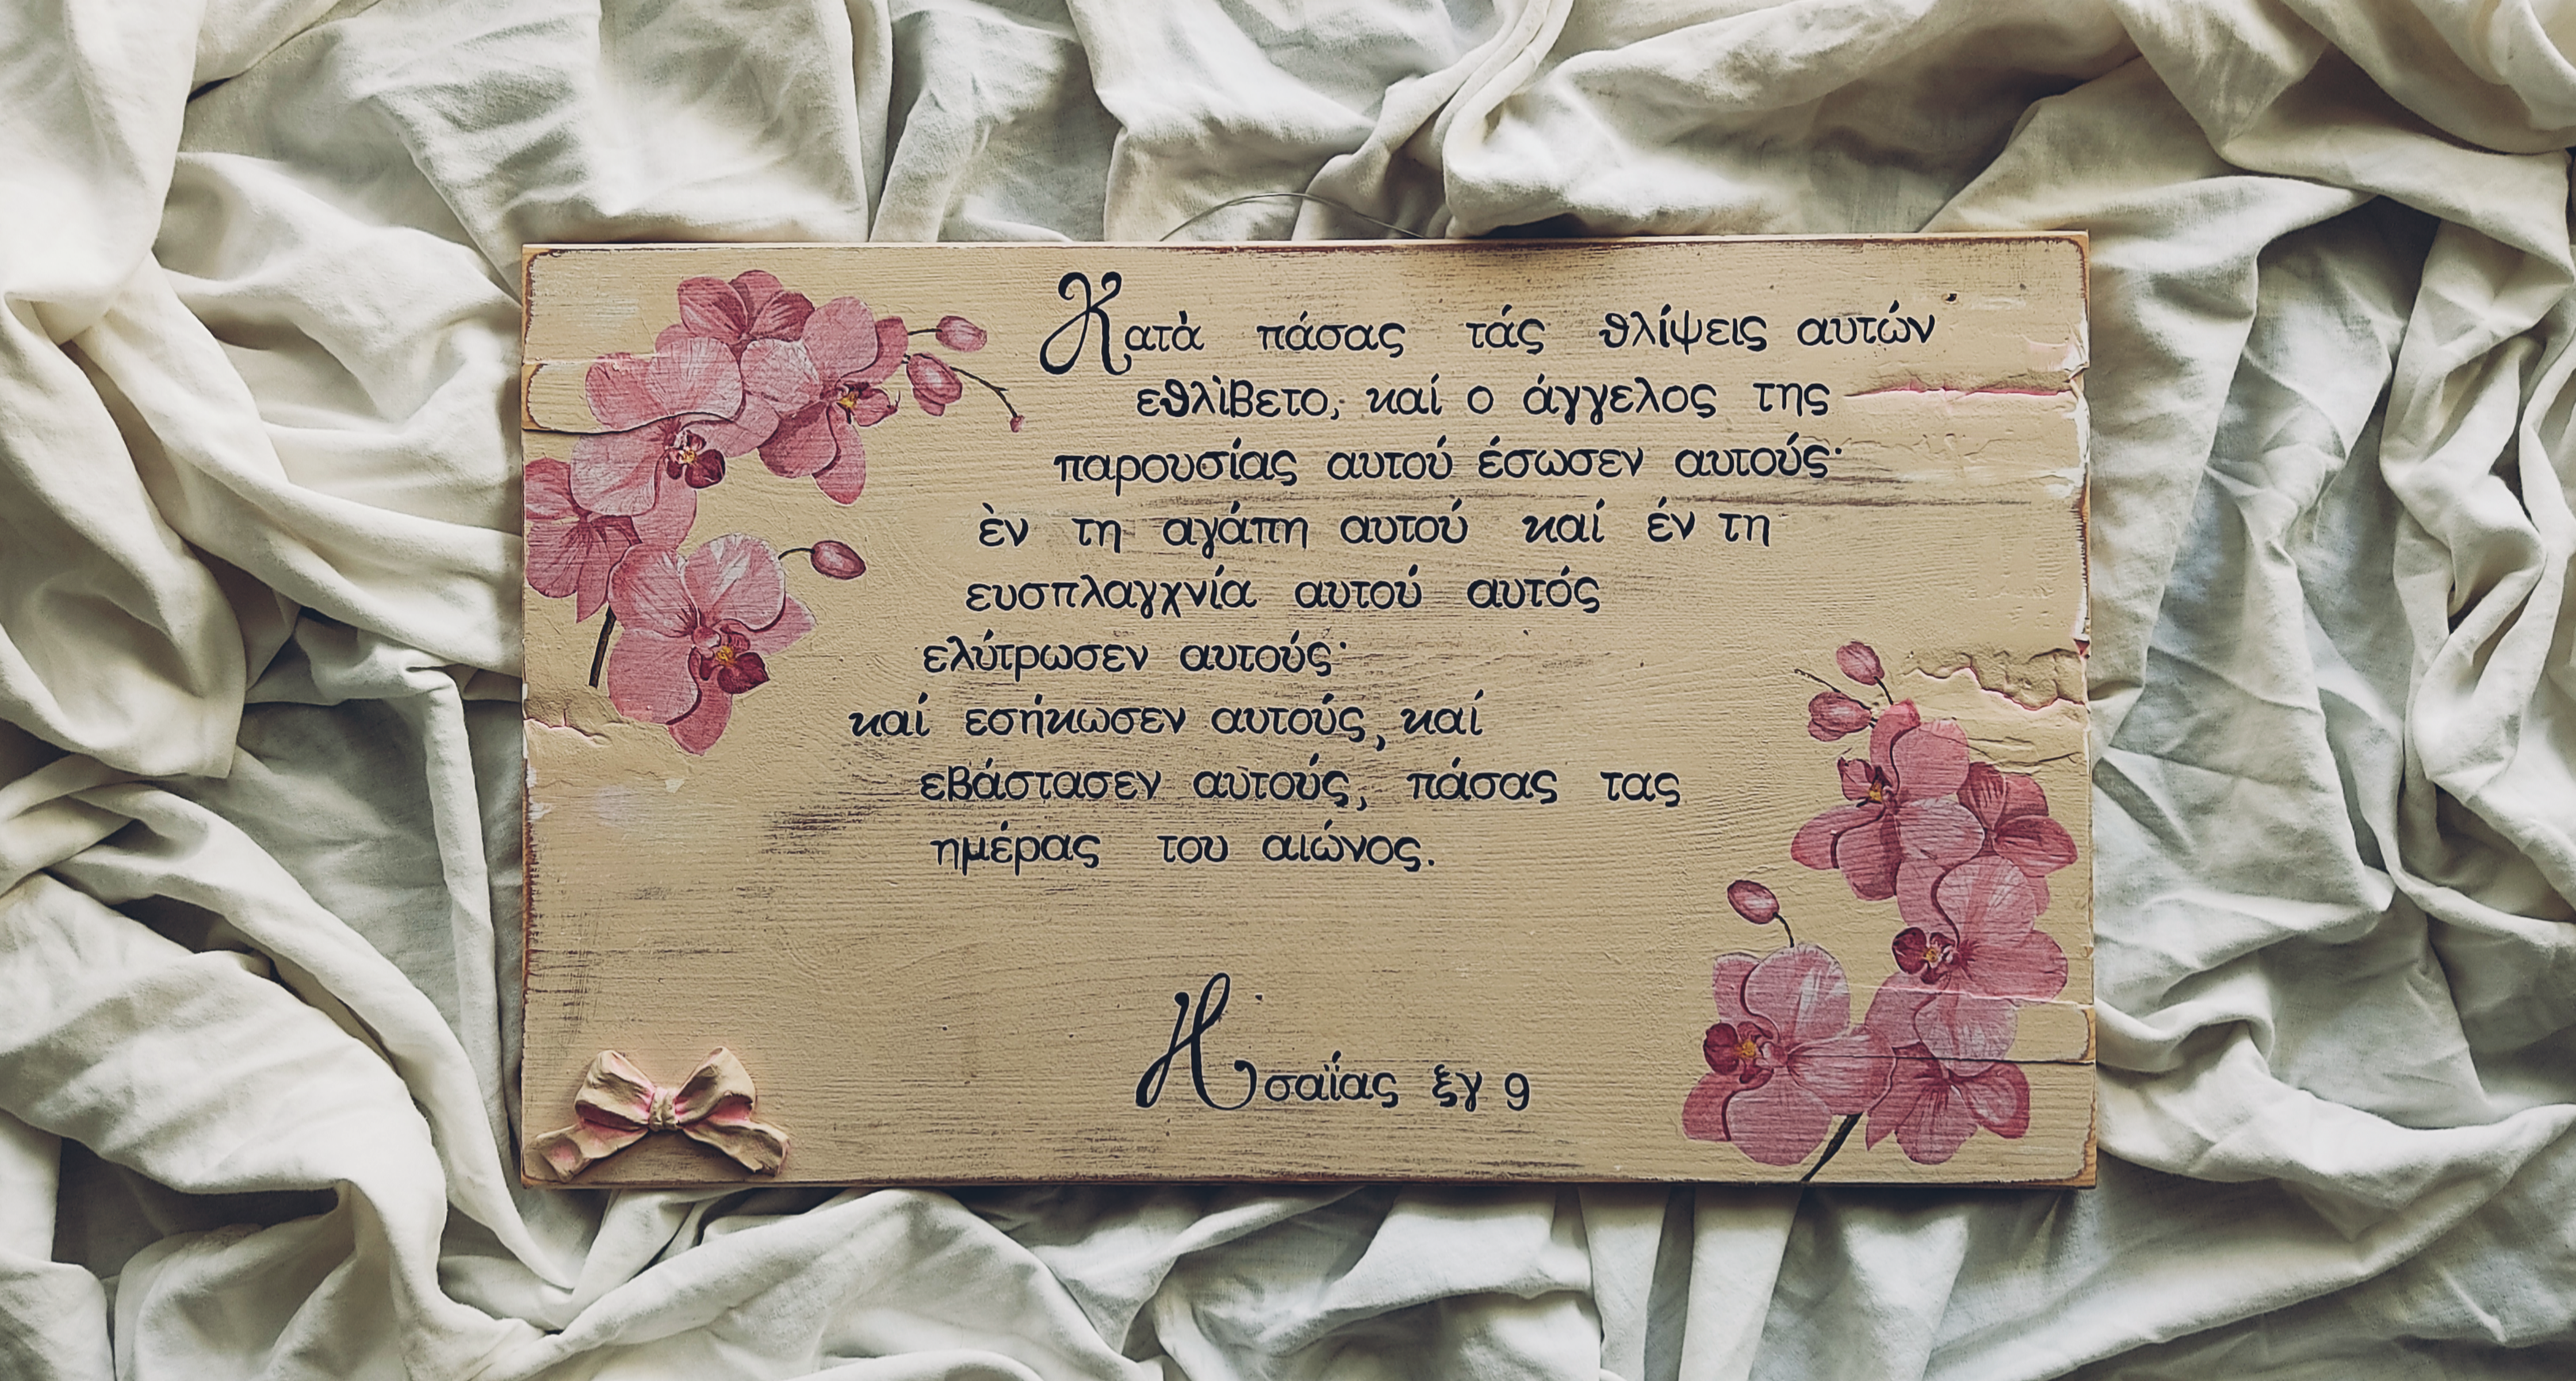 Κατὰ πάσας τάς θλίψεις αυτών
εθλὶβετο, καί ο άγγελος της
παρουσίας αυτού έσωσεν αυτούς·
ὲν τη αγάπη αυτού καί έν τη
ευσπλαγχνία αυτού αυτός
ελύτρωσεν αυτούς·
καί εσήκωσεν αυτούς, καί
εβάστασεν αυτούς, πάσας τας
ημέρας του αιώνος.
Ησαΐας ξγ 9